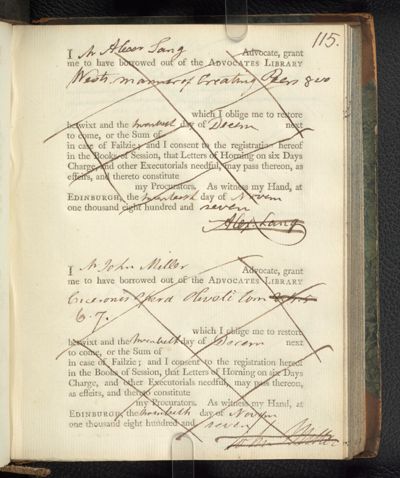 115.
I Mr Alexr Lang Advocate, grant
me to have borrowed out of the ADVOCATES LIBRARY
West's manner of Creating Peers 8vo
which I oblige me to restore
betwixt and the day of Decem next
to come, or the Sum of
in case of Failzie; and I consent to the registration hereof
in the Books of Session, that Letters of Horning on six Days
Charge, and other Executorials needful, may pass thereon, as
effeirs, and thereto constitute
my Procurators. As witness my Hand, at
EDINBURGH, the day of Novem
one thousand eight hundred and seven
Alexr Lang
I Mr John Miller Advocate, grant
me to have borrowed out of the ADVOCATES LIBRARY
Ciceronis Opera Oliveti Tom
6. 7.
which I oblige me to restore
betwixt and the day of Decem next
to come, or the Sum of
in case of Failzie; and I consent to the registration hereof
in the Books of Session, that Letters of Horning on six Days
Charge, and other Executorials needful, may pass thereon,
as effeirs, and thereto constitute
my Procurators. As witness my Hand, at
EDINBURGH, the day of Novem
one thousand eight hundred and seven